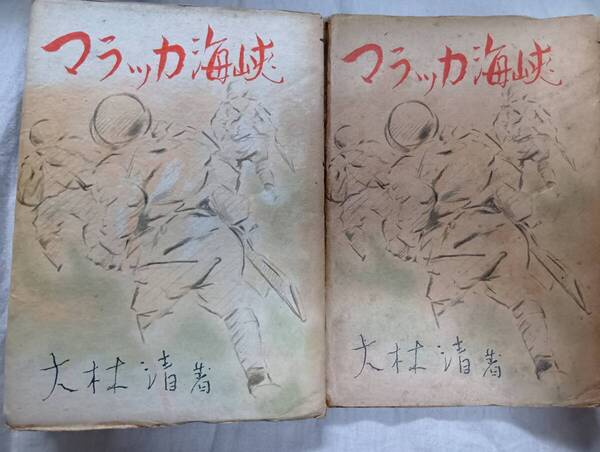 マラッカ海峡
大林清著
マラッカ海峡
大林清著